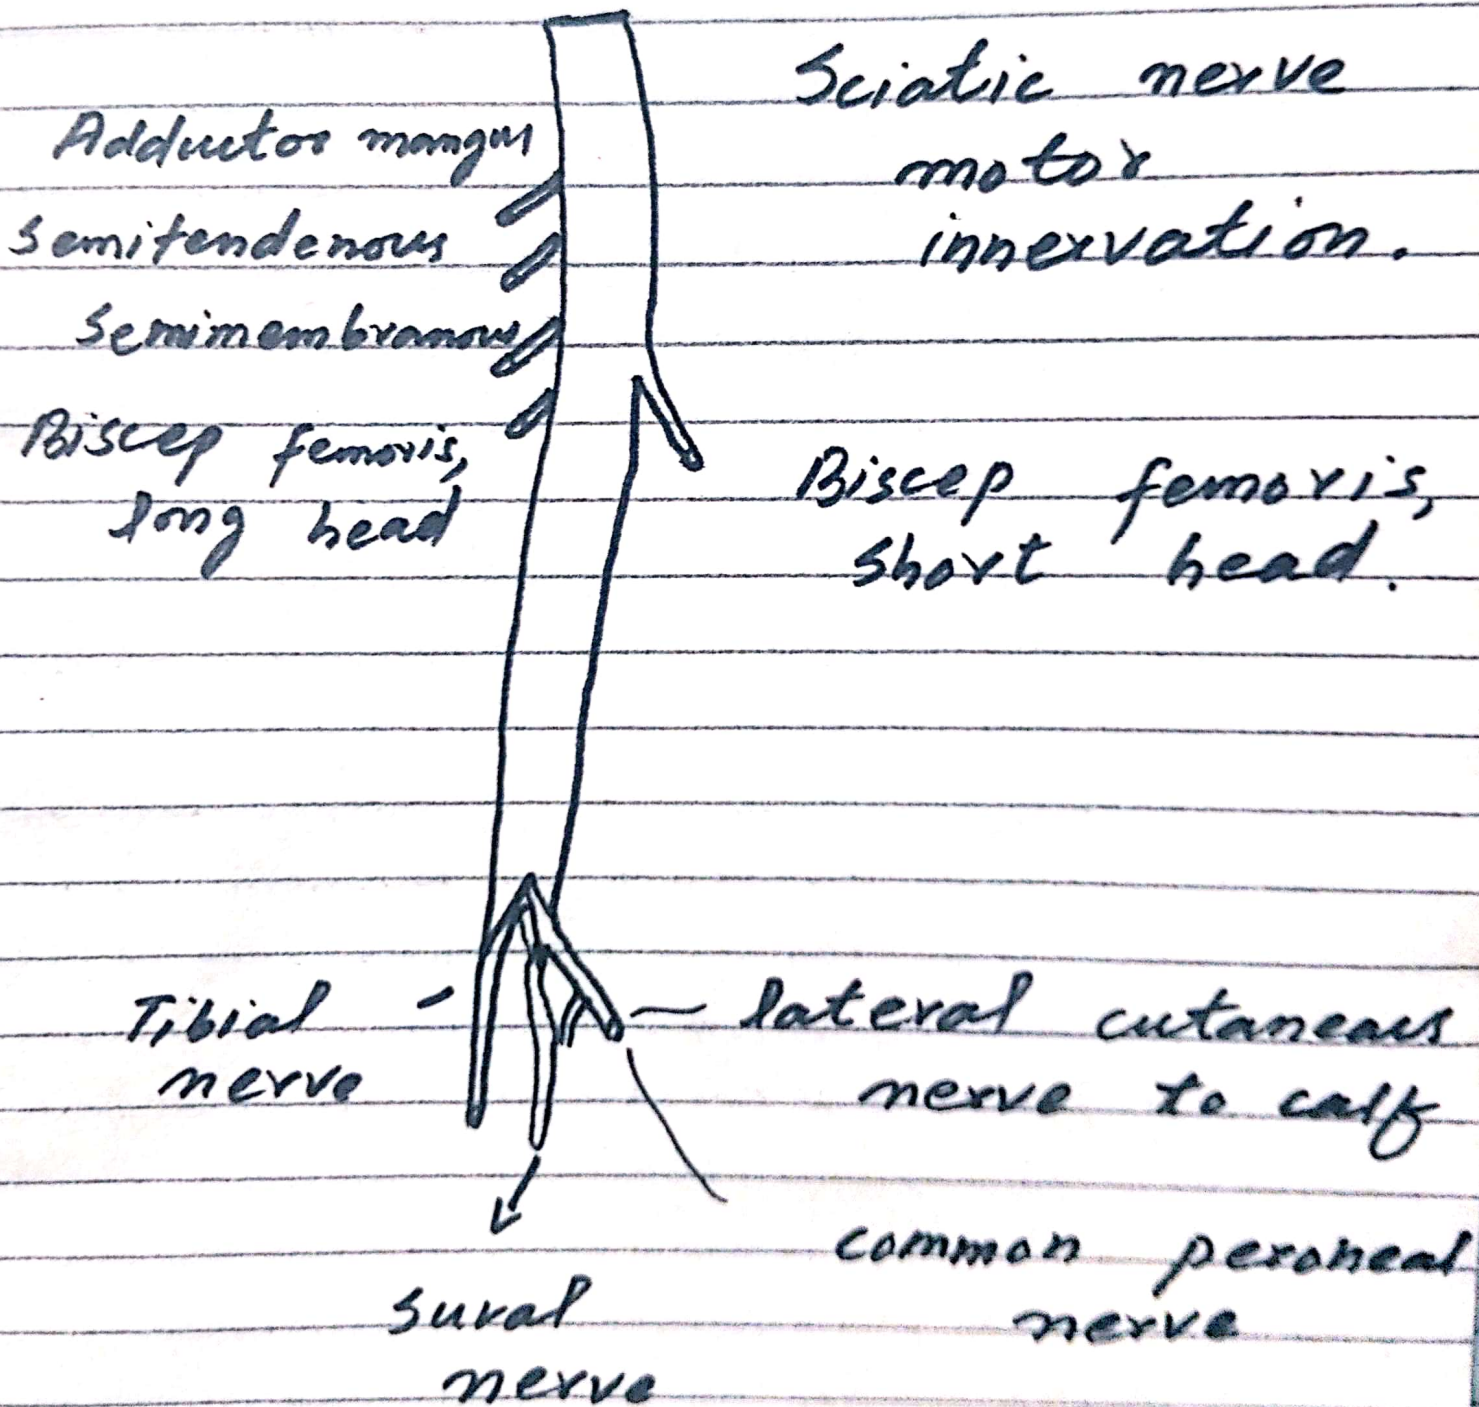 Sciatic nerve
motor
innervation.
Adductor mangus
Semitendenous
Semimembranous
Biscep femoris,
long head
Biscep femoris,
short head.
Tibial
nerve
lateral cutaneous
nerve to calf
common peroneal
nerve
sural
nerve